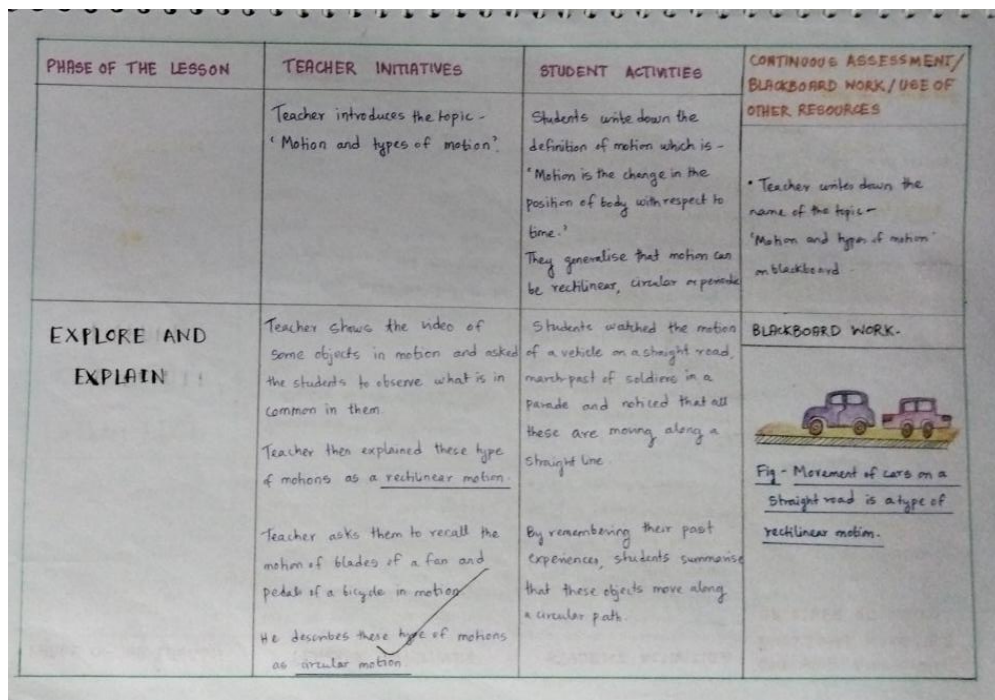 PHASE OF THE LESSON
TEACHER INITIATIVES
STUDENT ACTIVITIES
CONTINUOUS ASSESSMENT/
BLACKBOARD WORK/USE OF
OTHER RESOURCES
Teacher introduces the topic -
'Motion and types of motion'.
Students write down the
definition of motion which is -
'Motion is the change in the
position of body with respect to
time.'
They generalise that motion can
be rectilinear, circular or periodic
• Teacher writes down the
name of the topic -
'Motion and types of motion'
on blackboard.
EXPLORE AND
EXPLAIN
Teacher shows the video of
some objects in motion and asked
the students to observe what is in
common in them.
Teacher then explained these type
of motions as a rectilinear motion.
Teacher asks them to recall the
motion of blades of a fan and
pedals of a bicycle in motion.
He describes these type of motions
as circular motion
Students watched the motion
of a vehicle on a straight road,
march-past of soldiers in a
parade and noticed that all
these are moving along a
straight line.
By remembering their past
experiences, students summarise
that these objects move along
a circular path.
BLACKBOARD WORK-
Fig - Movement of cars on a
straight road is a type of
rectilinear motion.